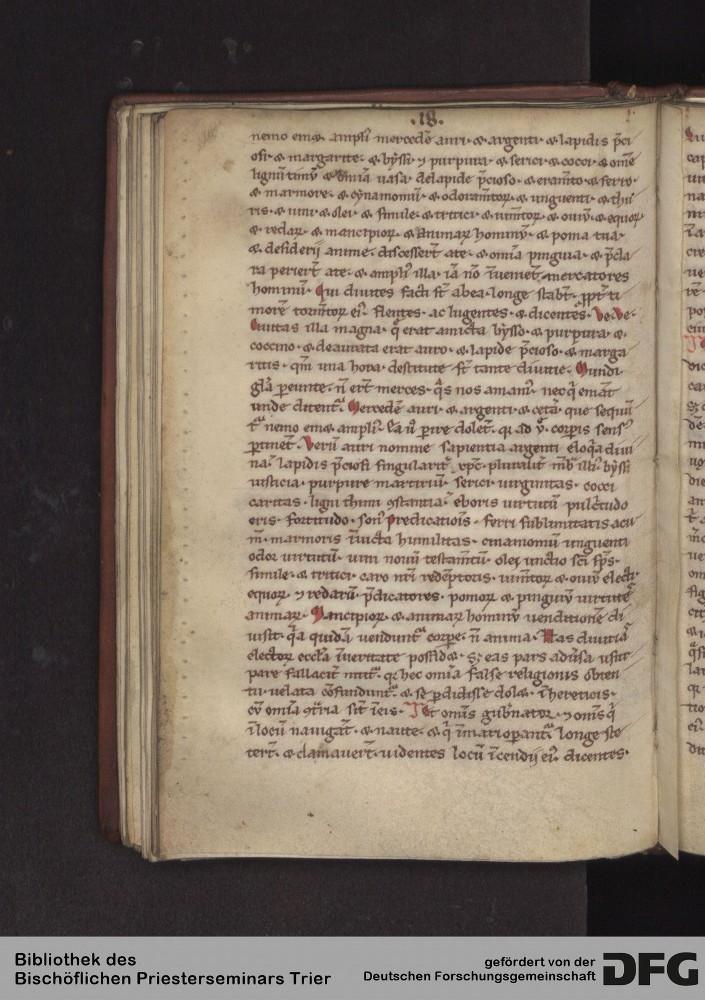 .18.
nemo emet ampli᷒ mercedē auri ⁊ argenti ⁊ lapidis p̄ci
osi ⁊ margarite ⁊ byssi ⁊ purpura ⁊ serici ⁊ cocci ⁊ om̄e
lignū timȳ ⁊ om̄ia uasa de lapide p̄cioso ⁊ eram̄to ⁊ ferro
⁊ marmore ⁊ cynamomū ⁊ odoram̄toꝝ ⁊ unguenti ⁊ thu
ris ⁊ uini ⁊ olei ⁊ simile ⁊ tritici ⁊ ium̄toꝝ ⁊ ouiū ⁊ equoꝝ
⁊ redaꝝ ⁊ mancipioꝝ ⁊ animaꝝ hominū ⁊ poma tua
⁊ desiderij anime discesserт̄ a te ⁊ om̄ia pinguia ⁊ p̄cla
ra perierт̄ a te ⁊ ampli᷒ illa iā nō īuenieт̄ mercatores
hominū Qui diuites facti sт̄ ab ea longe stabт̄ ꝓpт̄ ti
morē tormtoꝝ ei᷒ flentes ac lugentes ⁊ dicentes Ve Ve
Ciuitas illa magna q̄ erat amicta bysso ⁊ purpura ⁊
coccino ⁊ deaurata erat auro ⁊ lapide p̄cioso ⁊ marga
ritis qm̄ una hora destitute sт̄ tante diuitie Mundi
gl̄a pereunte n̄ erт̄ merces q̄s nos amam᷒ neq̄ emāt
unde ditentᷣ Mercedē auri ⁊ argenti ⁊ cetā que sequū
tᷣ nemo emet ampli᷒
ptinet Verū auri nomine sapientia argenti eloq̄a diui
na lapidis p̄ciosi singulariт̄ xpc pluraliт̄ mb᷒ illi᷒ byssi
iusticia purpure martiriū serici uirginitas cocci
caritas ligni thimi ꝯstantia eboris uirtutū pulcтudo
eris fortitudo son᷒ predicatiois ferri sublimitatis acu
m̄ marmoris īuicta humilitas cinamomū unguenti
odor uirtutū uini nouū testam̄tū olei unctio sci sp̄s
simile ⁊ tritici caro nr̄i redēptoris ium̄toꝝ ⁊ ouiū electi
equoꝝ ⁊ redarū p̄dicatores pomoꝝ ⁊ pinguiū uirtutē
animaꝝ Mancipioꝝ ⁊ animaꝝ hominū uenditionē di
uisit q̄a quidā uenduntᷣ corpe n̄ anima Has diuitias
electoꝝ eccl̄a ī ueritate possideт s; eas pars aduersa
pare fallacit̄ q̄ hec om̄ia false religionis obten
tu uelata cōfundunтᷣ ⁊ se p̄didisse doleт ī hereticis
cū om̄ia ꝯt̄ria sit ī eis Et omīs gub̄nator ⁊ omīs q̄
ī locū nauigat ⁊ naute ⁊ q̄ ī mari opantᷣ longe ste
terт̄ ⁊ clamauerт̄ uidentes locū īcendij ei᷒ dicentes
Bibliothek des
Bischöflichen Priesterseminars Trier
gefördert von der
Deutschen Forschungsgemeinschaft
DFG